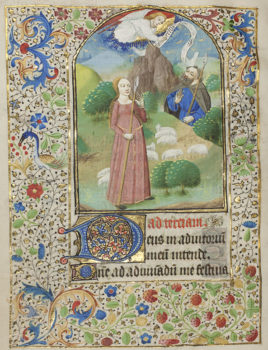 ad terciam
Deus in adiutoriū
meū intende.
Dñe ad adiuuādū me festina